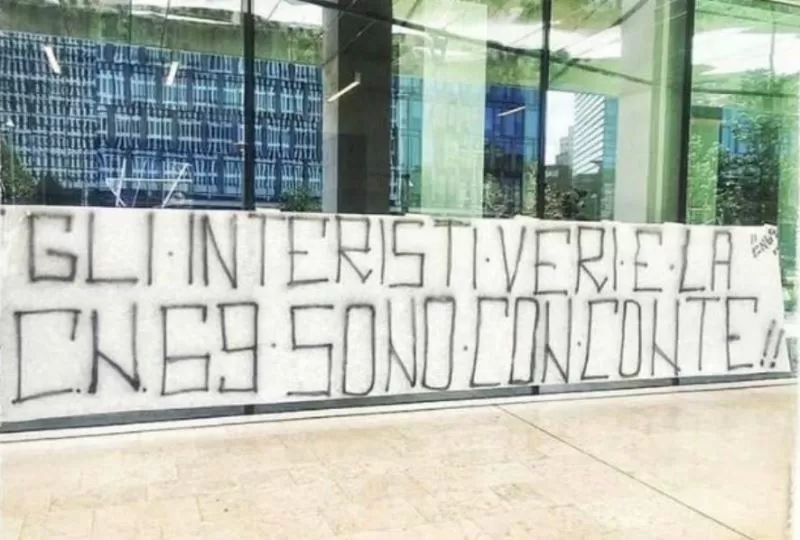 GLI·INTERISTI·VERI·E·LA
"CN69"
C.N.69·SONO·CON·CONTE!!